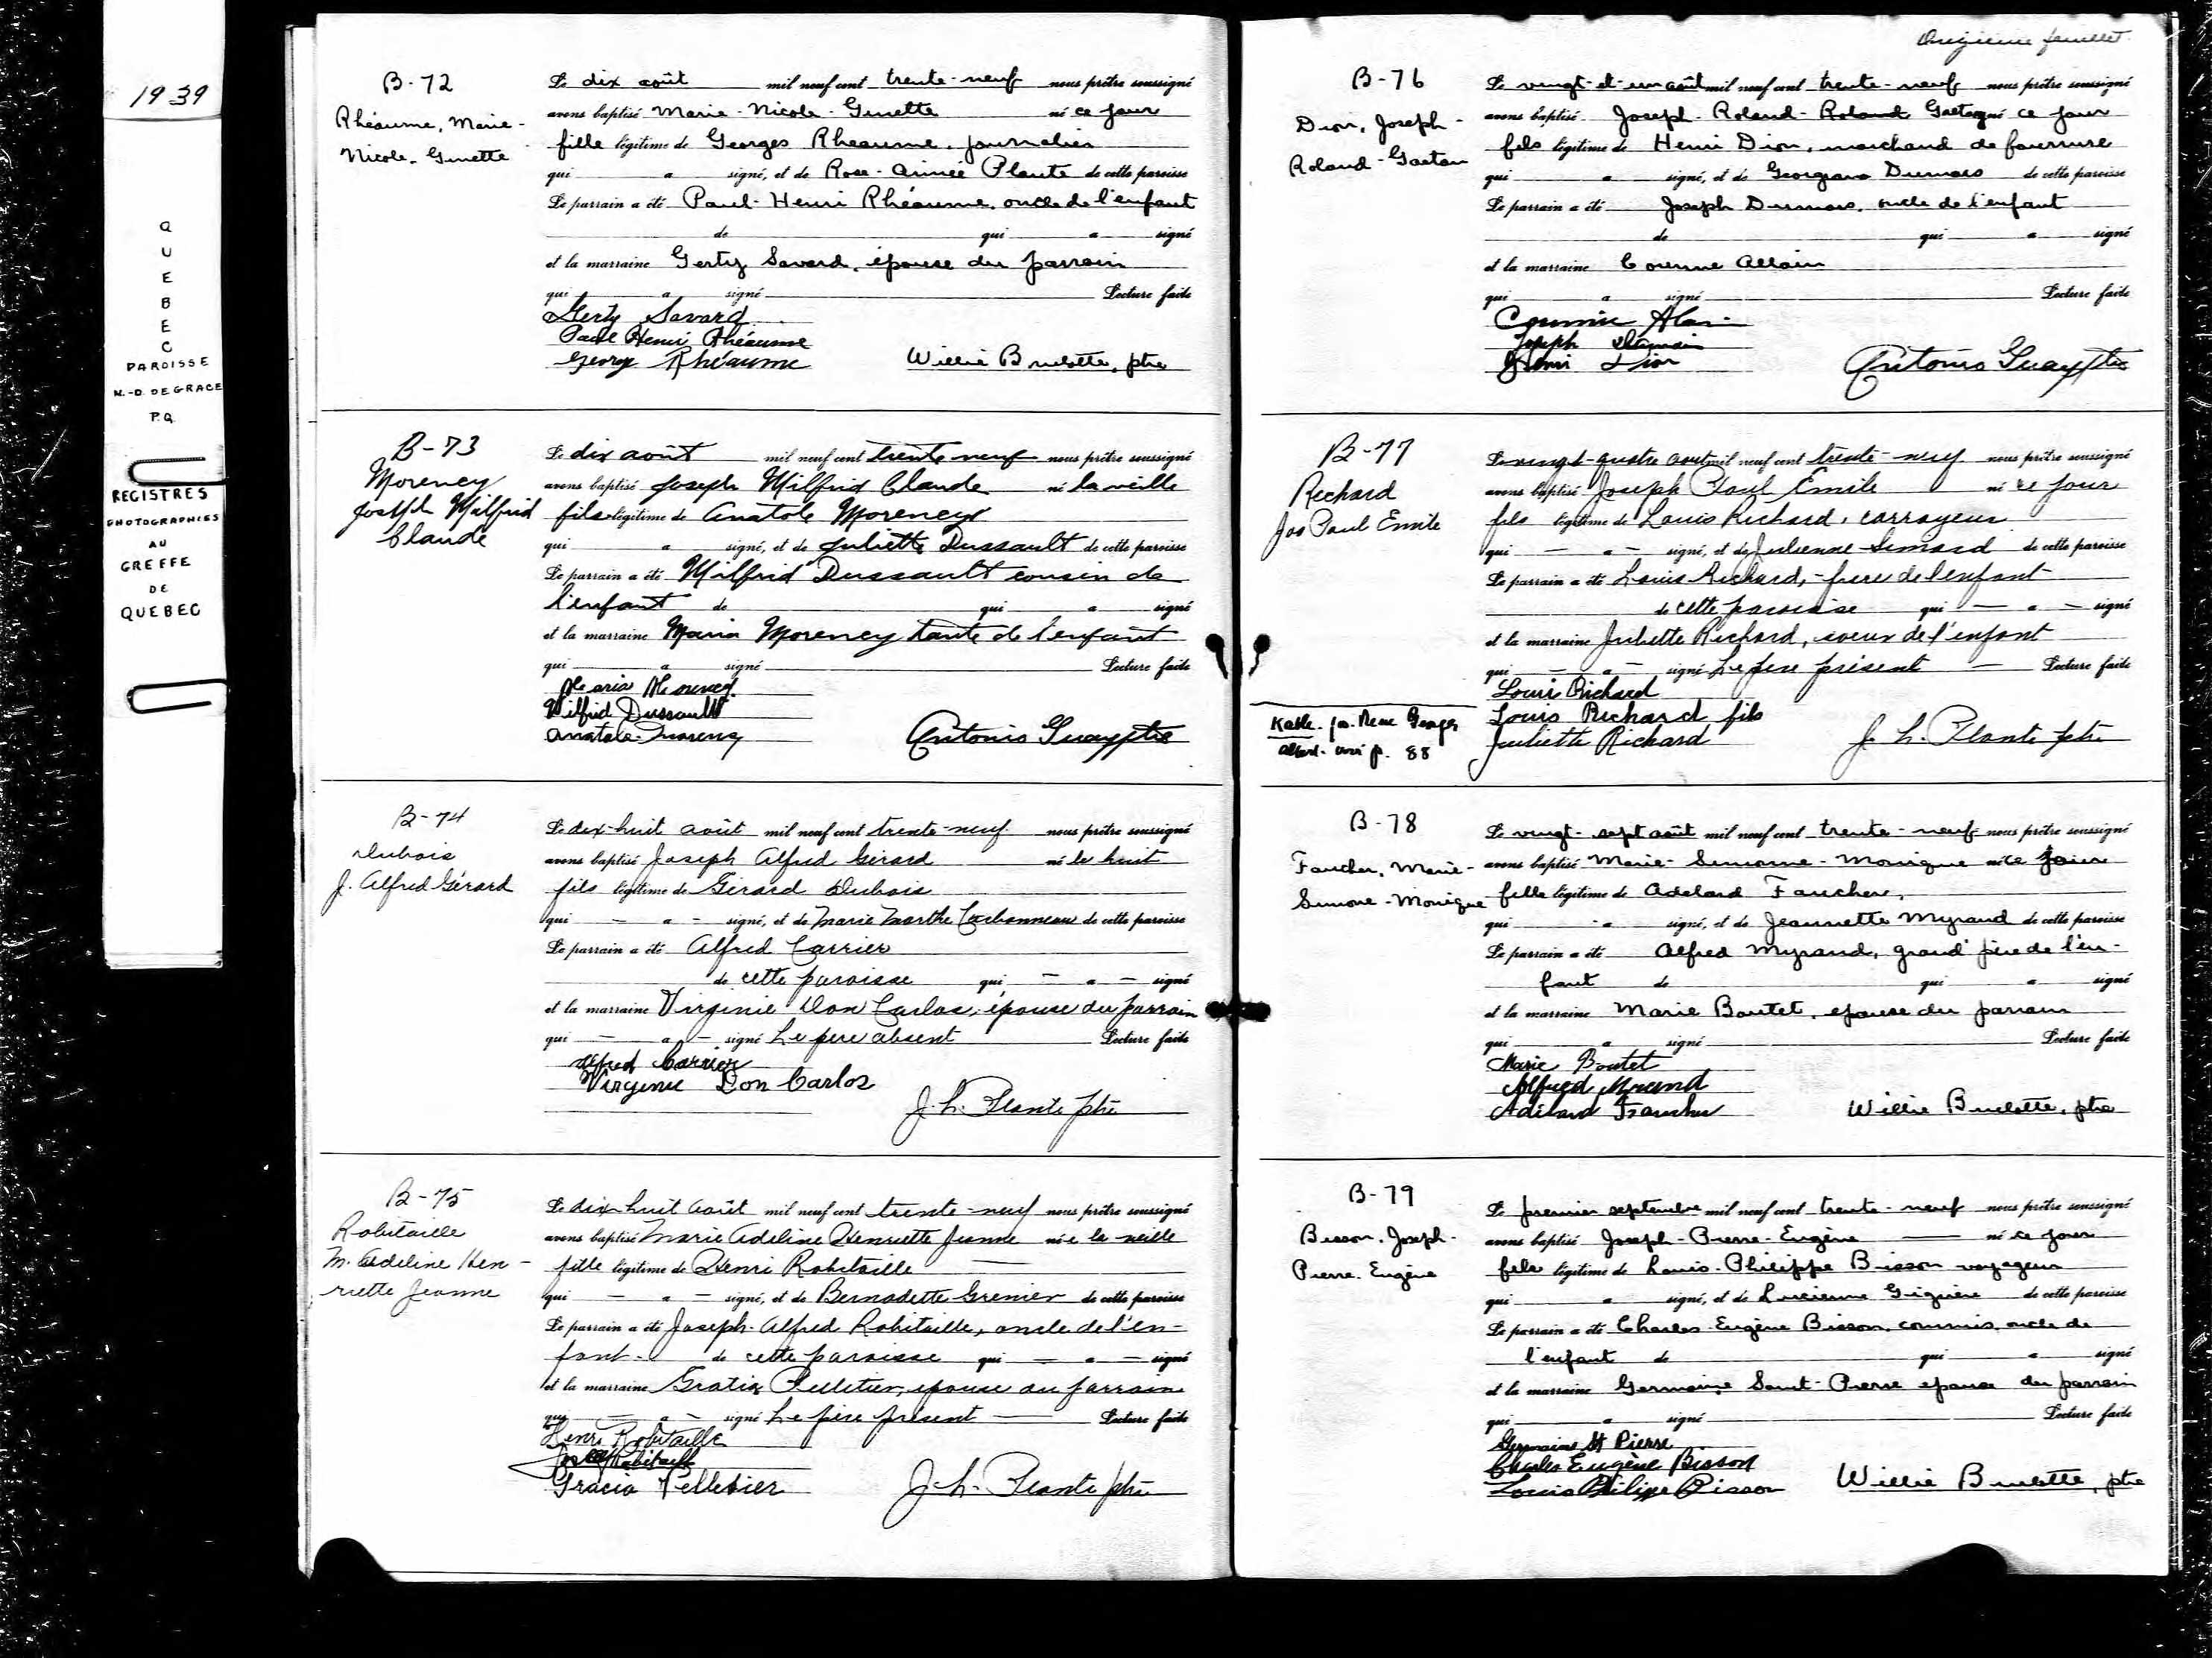 1939
QUEBEC
PAROISSE
N.-D. DE GRACE
P.Q.
REGISTRES
PHOTOGRAPHIES
AU
GREFFE
DE
QUEBEC
B-72
Rhéaume, Marie-
Nicole-Ginette
Le dix août mil neuf cent trente-neuf nous prêtre soussigné
avons baptisé Marie-Nicole-Ginette né ce jour
fille légitime de Georges Rheaume, journalier
qui a signé, et de Rose-Aimée Plante de cette paroisse
Le parrain a été Paul-Henri Rhéaume, oncle de l'enfant
de qui a signé
et la marraine Gerty Savard, épouse du parrain
qui a signé Lecture faite
Gerty Savard
Paul Henri Rhéaume
Georg Rhéaume Willie Brulotte, ptre
B-73
Morency
Joseph Wilfrid
Claude
Le dix août mil neuf cent trente neuf nous prêtre soussigné
avons baptisé Joseph Wilfrid Claude né la veille
fils légitime de Anatole Morency
qui a signé, et de Juliette Dussault de cette paroisse
Le parrain a été Wilfrid Dussault cousin de
l'enfant de qui a signé
et la marraine Maria Morency tante de l'enfant
qui a signé Lecture faite
Maria Morency
Wilfrid Dussault
Anatole Morency Antonio Guay ptre
B-74
Dubois
J. Alfred Gérard
Le dix-huit août mil neuf cent trente-neuf nous prêtre soussigné
avons baptisé Joseph Alfred Gérard né le huit
fils légitime de Gérard Dubois
qui - a - signé, et de Marie Marthe Carbonneau de cette paroisse
Le parrain a été Alfred Carrier
de cette paroisse qui - a - signé
et la marraine Virginie Don Carlos, épouse du parrain
qui - a - signé Le père absent Lecture faite
Alfred Carrier
Virginie Don Carlos
J. h. Plante ptre
B-75
Robitaille
M. Adeline Hen-
riette Jeanne
Le dix huit août mil neuf cent trente-neuf nous prêtre soussigné
avons baptisé Marie Adeline Henriette Jeanne née la veille
fille légitime de Henri Robitaille
qui - a - signé, et de Bernadette Grenier de cette paroisse
Le parrain a été Joseph-Alfred Robitaille, oncle de l'en-
fant - de cette paroisse qui - a - signé
et la marraine Gratia Pelletier, épouse du parrain
qui - a - signé Le père présent Lecture faite
Henri Robitaille
Robitaille
Gracia Pelletier J. h. Plante ptre
Onzième feuillet
B-76
Dion, Joseph-
Roland-Gaetan
Le vingt-et-un août mil neuf cent trente-neuf nous prêtre soussigné
avons baptisé Joseph-Roland-Roland Gaetan né ce jour
fils légitime de Henri Dion, marchand de fourrure
qui a signé, et de Georgiana Dumais de cette paroisse
Le parrain a été Joseph Dumais, oncle de l'enfant
de qui a signé
et la marraine Corinne Allain
qui a signé Lecture faite
Corinne
Joseph
Henri Dion Antonio Guay ptre
B-77
Richard
Jos Paul Emile
Le vingt-quatre août mil neuf cent trente-neuf nous prêtre soussigné
avons baptisé Joseph Paul Emile né ce jour
fils légitime de Louis Richard, carroyeur
qui - a - signé, et de Julienne Simard de cette paroisse
Le parrain a été Louis Richard, - frère de l'enfant
de cette paroisse qui - a - signé
et la marraine Juliette Richard, soeur de l'enfant
qui - a - signé Le père présent - Lecture faite
Louis Richard
Louis Richard fils
Juliette Richard J. h. Plante ptre
Georges
p. 88
B-78
Faucher, Marie-
Simone-Monique
Le vingt-sept août mil neuf cent trente-neuf nous prêtre soussigné
avons baptisé Marie-Simone-Monique née ce jour
fille légitime de Adelard Faucher,
qui a signé, et de Jeannette Myrand de cette paroisse
Le parrain a été Alfred Myrand, grand'père de l'en-
fant de qui a signé
et la marraine Marie Boutet, épouse du parrain
qui a signé Lecture faite
Marie Boutet
Alfred Myrand
Adélard Faucher Willie Brulotte, ptre
B-79
Bisson, Joseph-
Pierre-Eugène
Le premier septembre mil neuf cent trente-neuf nous prêtre soussigné
avons baptisé Joseph-Pierre-Eugène né ce jour
fils légitime de Louis-Philippe Bisson voyageur
qui a signé, et de Lucienne Giguère de cette paroisse
Le parrain a été Charles-Eugène Bisson, commis, oncle de
l'enfant de qui a signé
et la marraine Germaine Saint-Pierre épouse du parrain
qui a signé Lecture faite
Germaine St Pierre
Charles Eugène Bisson
Louis Philippe Bisson Willie Brulotte, ptre